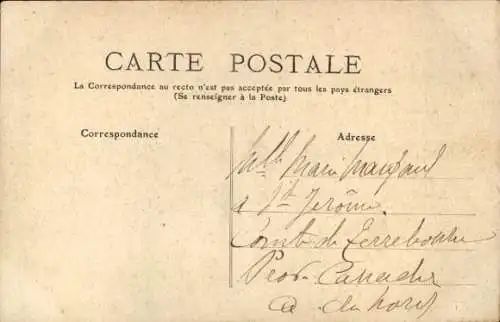 CARTE POSTALE
La Correspondance au recto n'est pas acceptée par tous les pays étrangers
(Se renseigner à la Poste)
Correspondance
Adresse
Mlle Marie
à St Jerôme.
Comté de Terrebonne
Prov. Canada
du nord